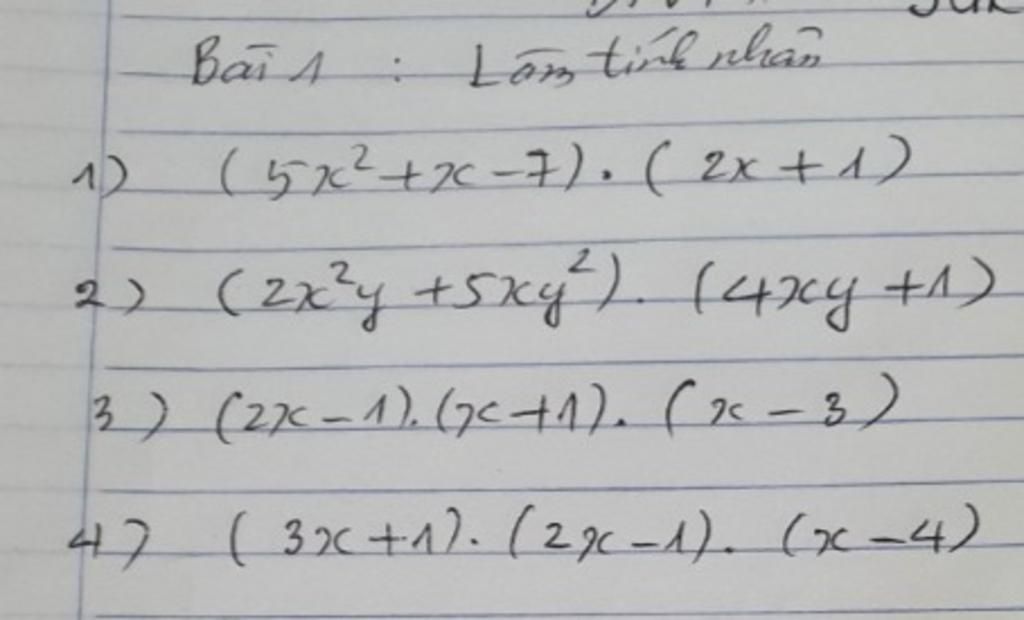 Bài 1 : Làm tính nhân
1) (5x² + x - 7) . (2x + 1)
2) (2x²y + 5xy²) . (4xy + 1)
3) (2x - 1) . (x + 1) . (x - 3)
4) (3x + 1) . (2x - 1) . (x - 4)